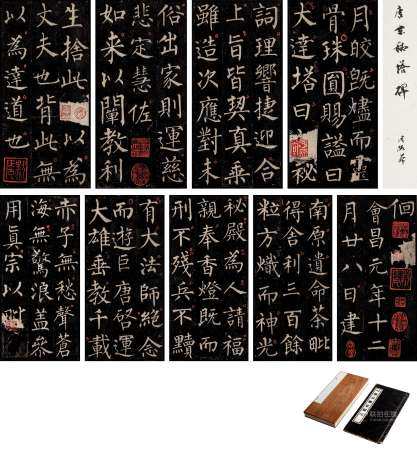 唐玄秘塔碑
月皎既燼而
骨珠圓賜謚曰
大達塔曰 秘
詞理響捷迎合
上旨皆契真乘
雖造次應對未
俗出家則運慈
悲定慧佐
如來以闡教利
生捨此 以為
丈夫也背此無
以為達道也
迴
會昌元年十二
月廿八日建
南原遺命荼毗
得舍利三百餘
粒方熾而神光
秘殿為人請福
親奉香燈既而
刑不殘兵不黷
有大法師絕念
而遊巨唐啓運
大雄垂教千載
赤子無愁聲蒼
海無驚浪蓋參
用真宗以毗